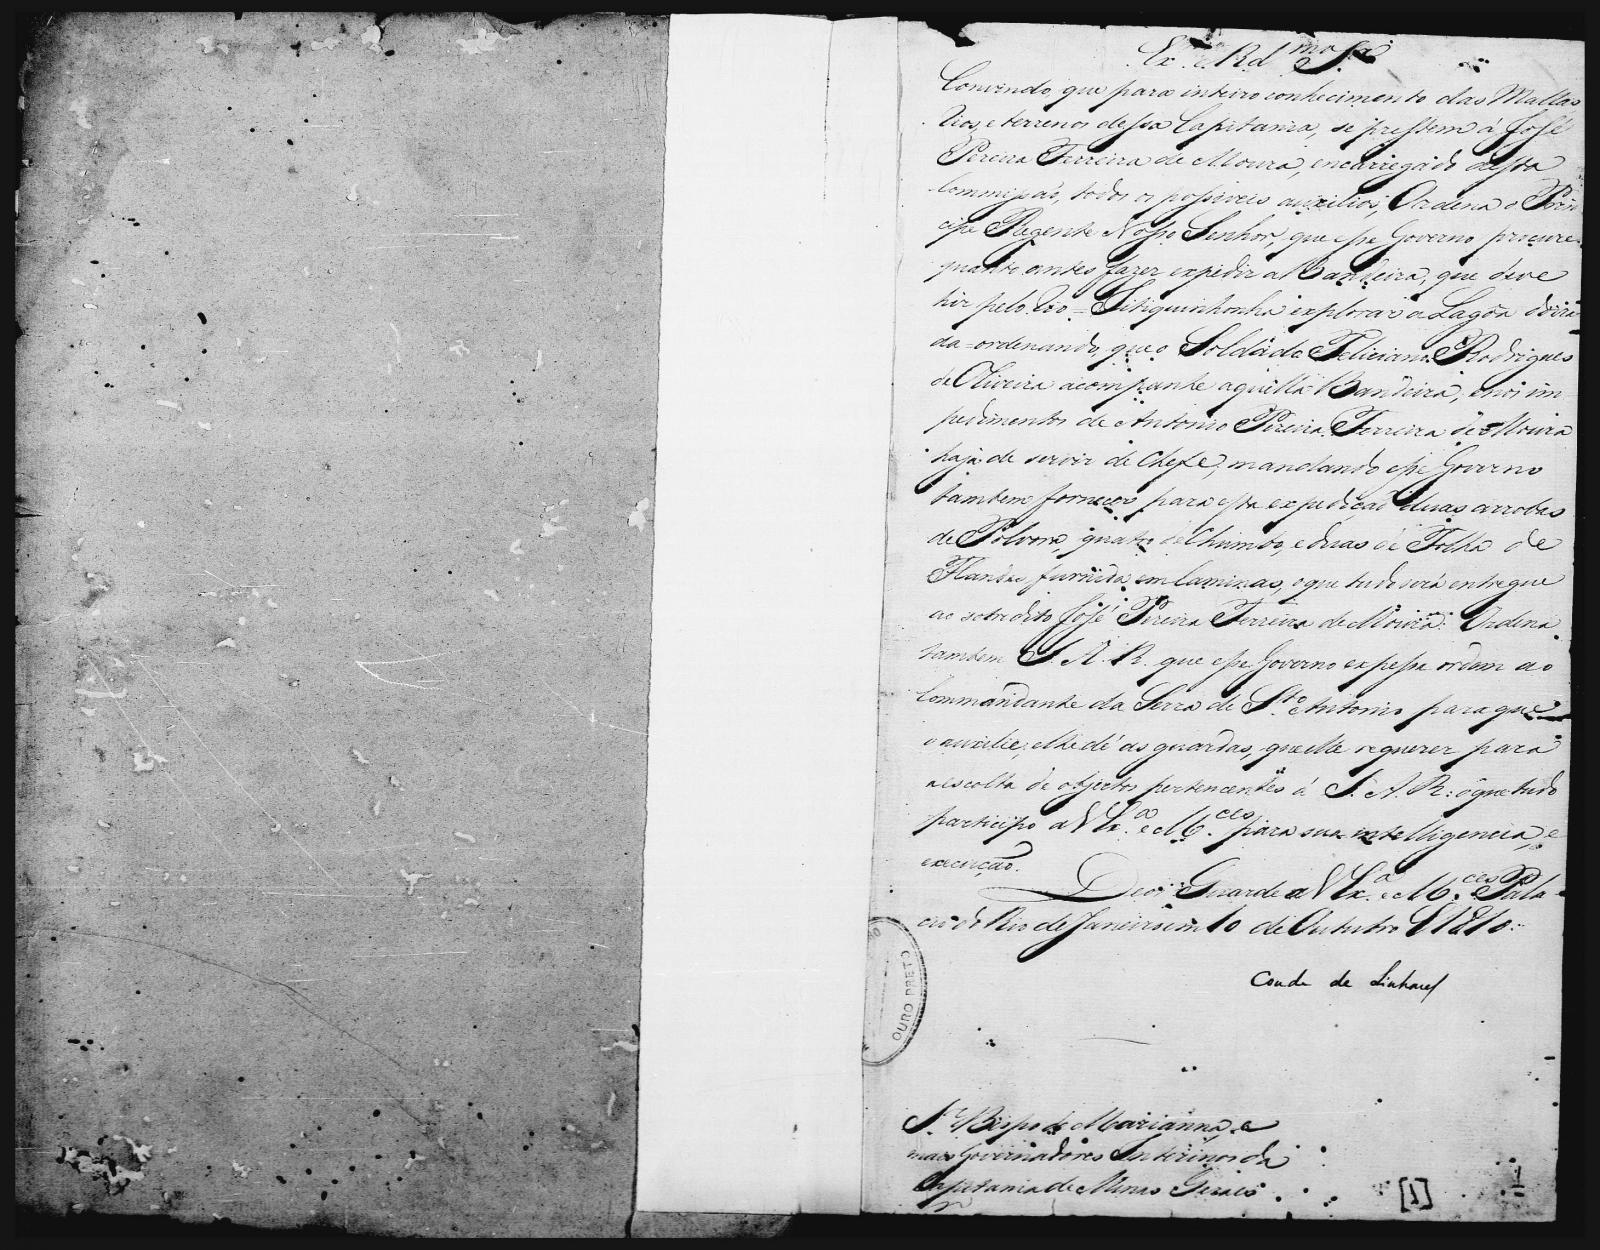 Ex.mo e Rd.mo Sr.
Convindo, que para inteiro conhecimento das Mattas
Rios, e terrenos dessa Capitania, se prestem á José
Pereira Ferreira de Moura, encarregado desta
Commissaõ, todos os possiveis auxilios, Ordena o Prin
cipe Regente Nosso Senhor, que esse Governo procure
quanto antes fazer expedir a Bandeira, que deve
hir pelo Rio = Jitiquinhonha explorar a Lagôa doira
da = ordenando, que o Soldado Feliciano Rodrigues
de Oliveira acompanhe aquella Bandeira, e nos im
pedimentos de Antonio Pereira Ferreira de Moura
haja de servir de Chefe, mandando esse Governo
tambem fornecer para esta expediçaõ duas arrobas
de Polvora, quatro de Chumbo, e duas de Folha de
Flandes furnida em laminas, o que tudo será entregue
ao sobredito José Pereira Ferreira de Moura: Ordena
tambem S. A. R. que esse Governo expessa ordem ao
Commandante da Serra de S.to Antonio para que
o auxilie, e lhe dê as guardas, que elle requerer para
a escolta de objectos pertencentes á S. A. R: o que tudo
participo a V Ex.a e M.ces para sua intelligencia, e
execuçaõ.
Deos Guarde a V Ex.a e M.ces Pala
cio do Rio de Janeiro em 10 de Outubro de 1810.
Conde de Linhares
Sr. Bispo de Marianna, e
mais Governadores Interinos da
Capitania de Minas Geraes
[1]
1
OURO PRETO